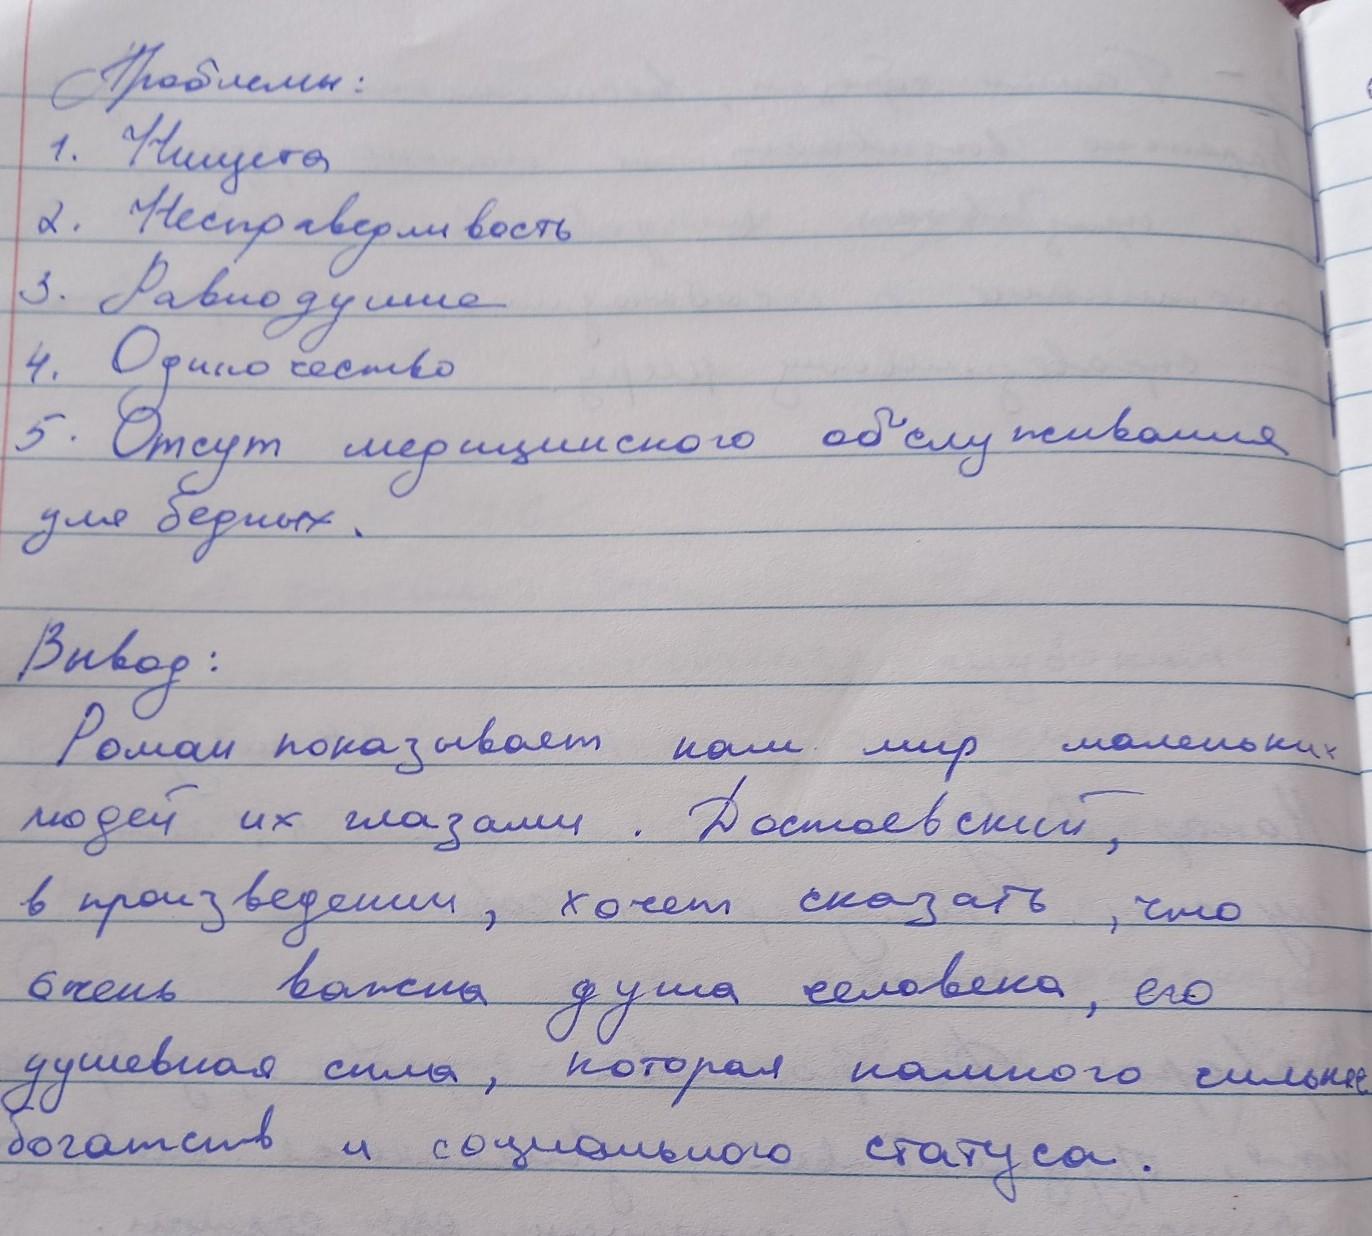 Проблемы:
1. Нищета
2. Несправедливость
3. Равнодушие
4. Одиночество
5. Отсут медицинского обслуживания
для бедных.
Вывод:
Роман показывает нам мир маленьких
людей их глазами. Достоевский,
в произведении, хочет сказать, что
очень важна душа человека, его
душевная сила, которая намного сильнее
богатств и социального статуса.